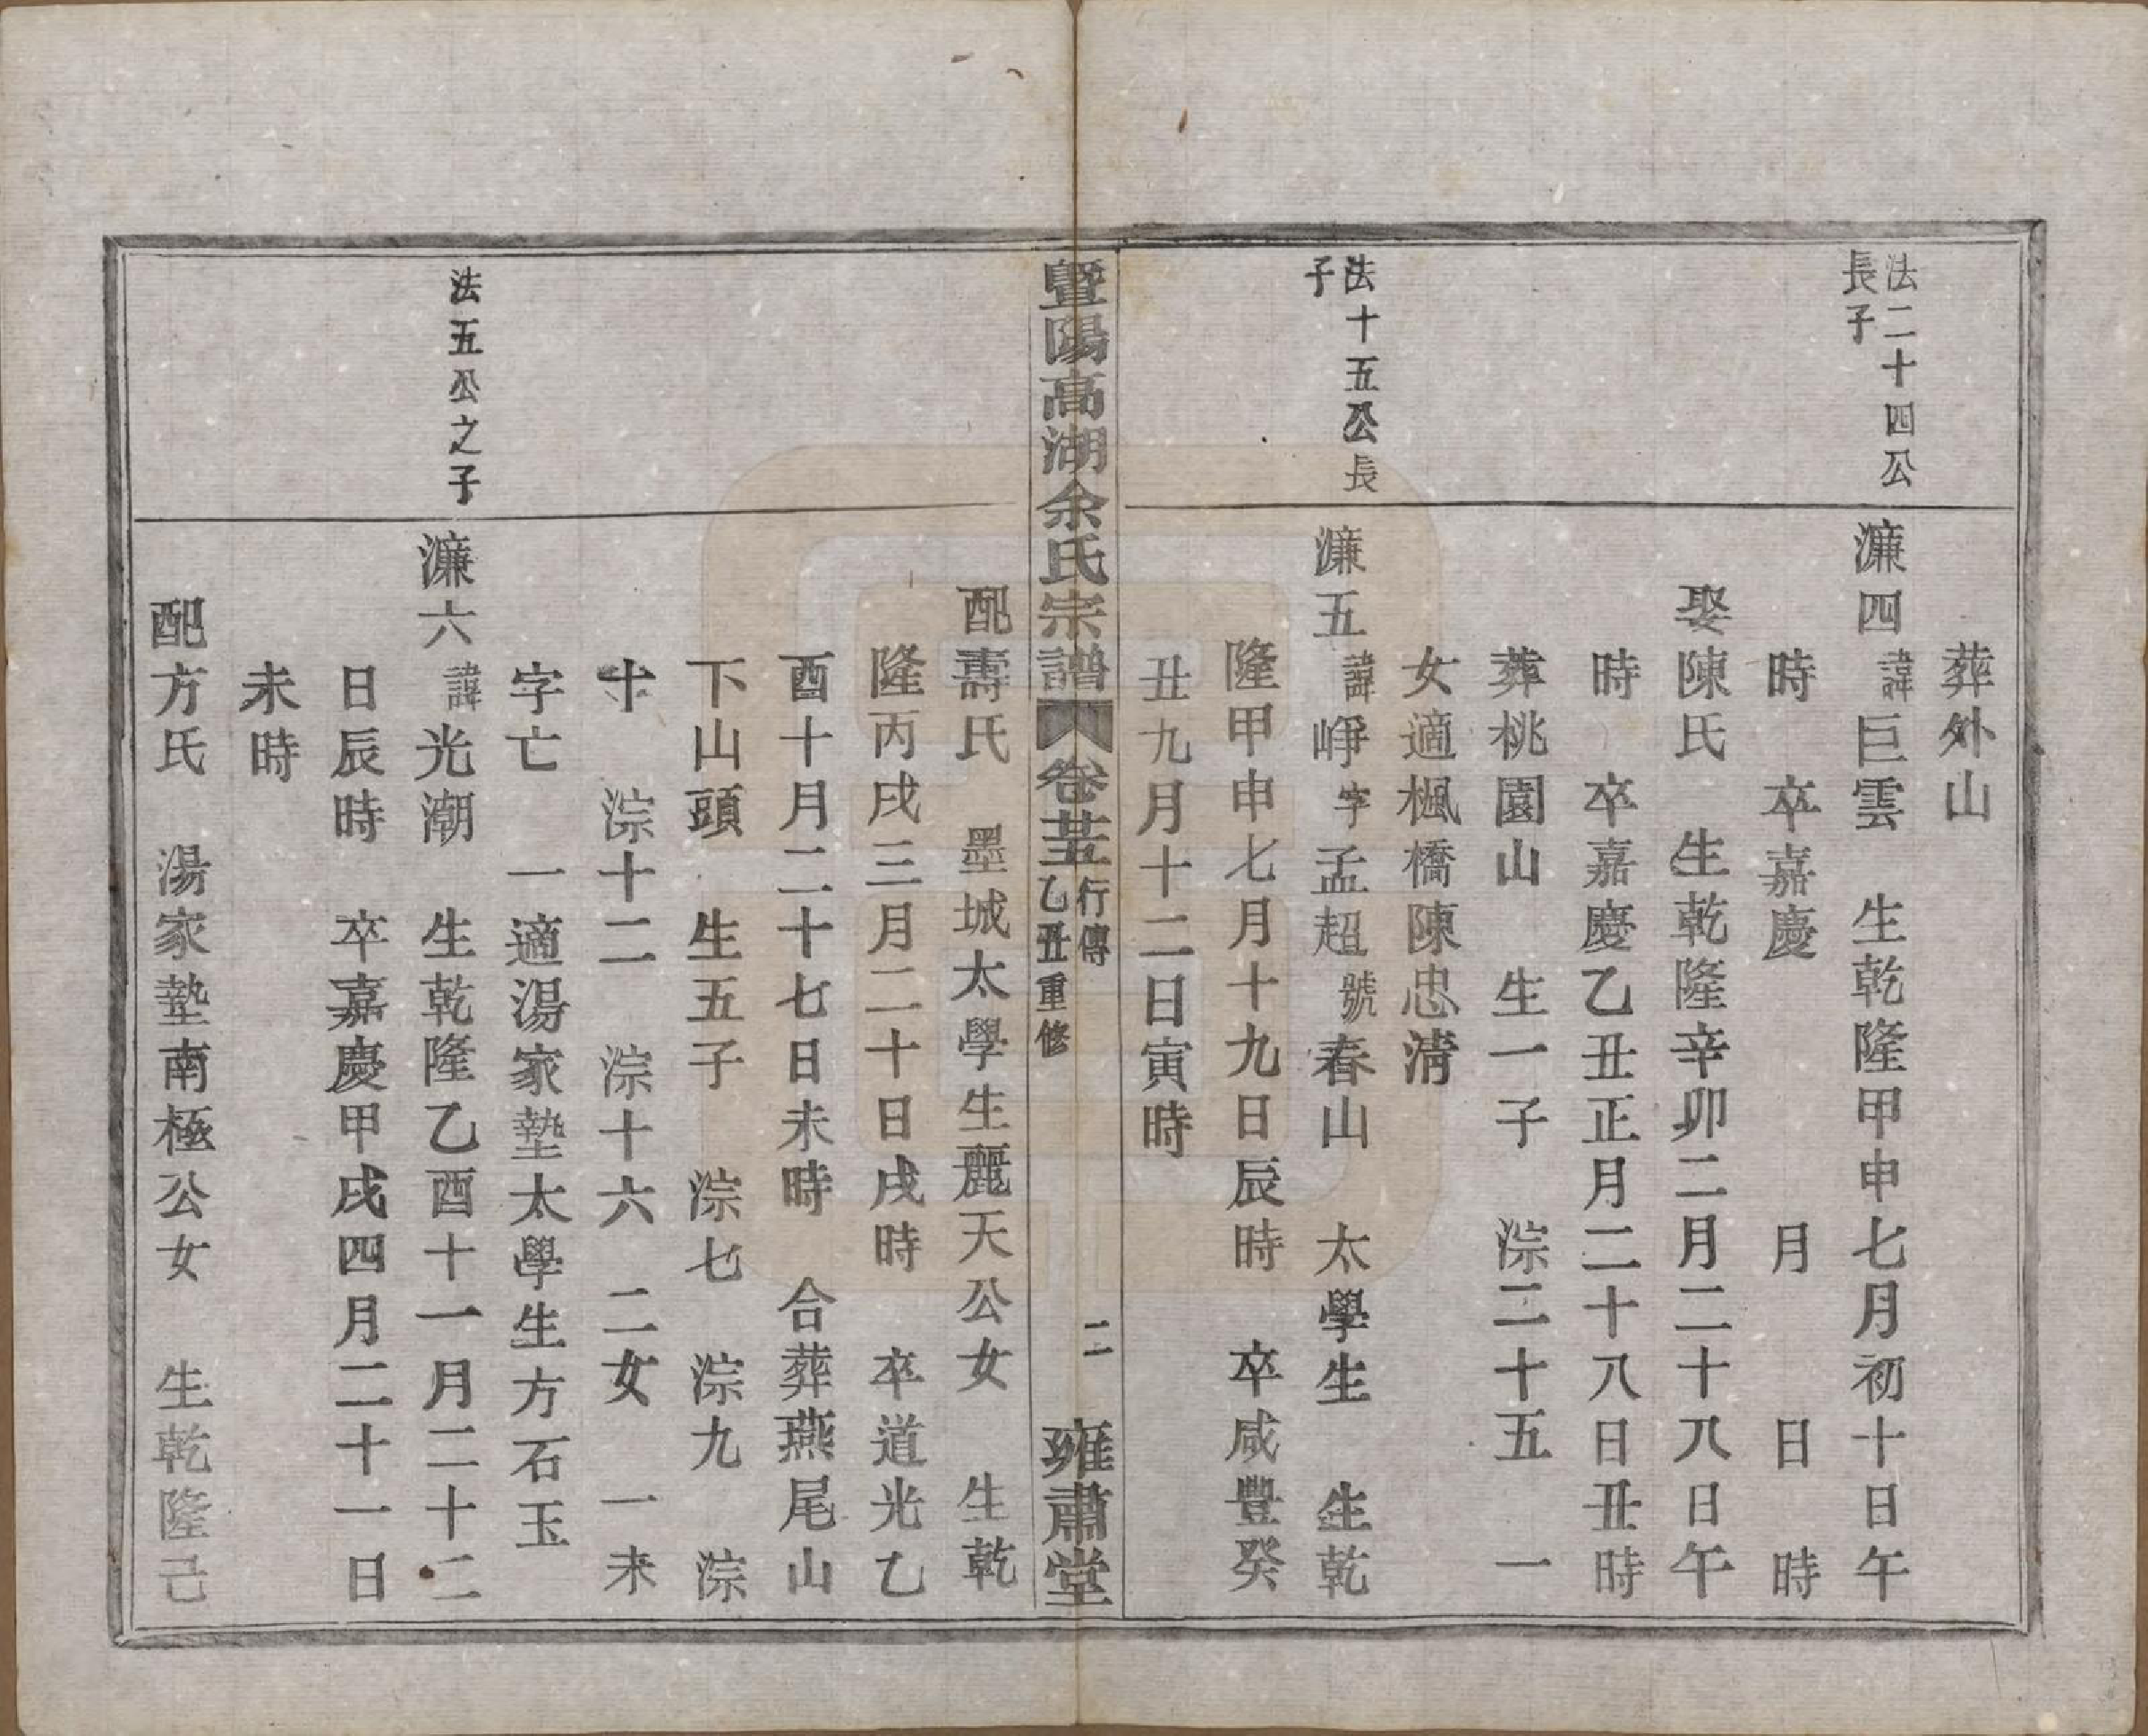 葬外山
法二十四公
長子
濂四 諱巨雲 生乾隆甲申七月初十日午
時 卒嘉慶 月 日 時
娶陳氏 生乾隆辛卯二月二十八日午
時 卒嘉慶乙丑正月二十八日丑時
葬桃園山 生一子 淙二十五 一
女適楓橋陳忠清
法十五公長
子
濂五 諱崢字孟超號春山 太學生 生乾
隆甲申七月十九日辰時 卒咸豐癸
丑九月十二日寅時
暨陽高湖余氏宗譜 卷茥 行傳 乙丑重修 二 雍肅堂
配壽氏 墨城太學生麗天公女 生乾
隆丙戌三月二十日戌時 卒道光乙
酉十月二十七日未時 合葬燕尾山
下山頭 生五子 淙七 淙九 淙
十 淙十二 淙十六 二女 一未
字亡 一適湯家墊太學生方石玉
法五公之子
濂六 諱光潮 生乾隆乙酉十一月二十二
日辰時 卒嘉慶甲戌四月二十一日
未時
配方氏 湯家墊南極公女 生乾隆己